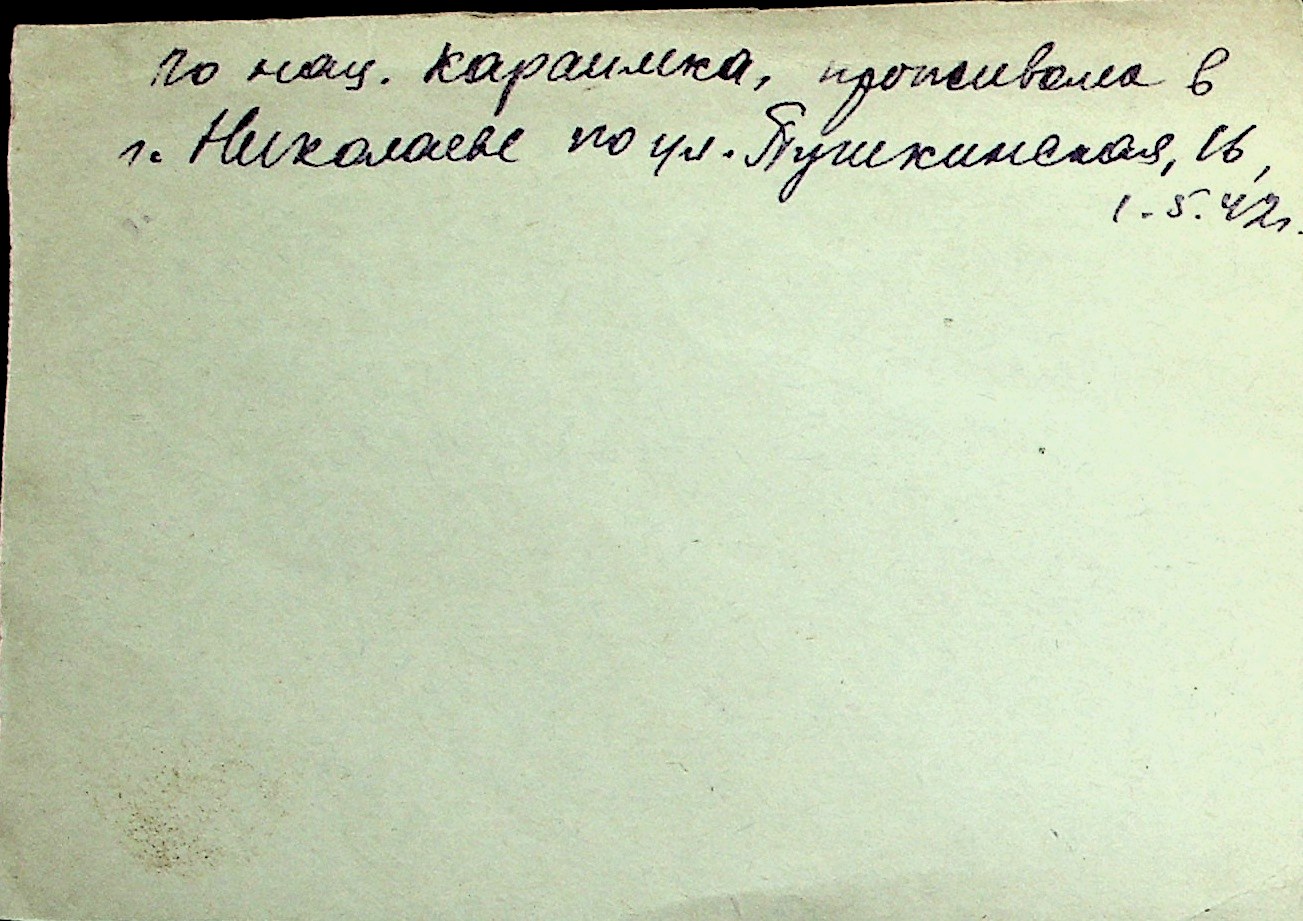 по нац. караимка, проживала в
г. Николаеве по ул. Пушкинская, 16,
1.5.42г.